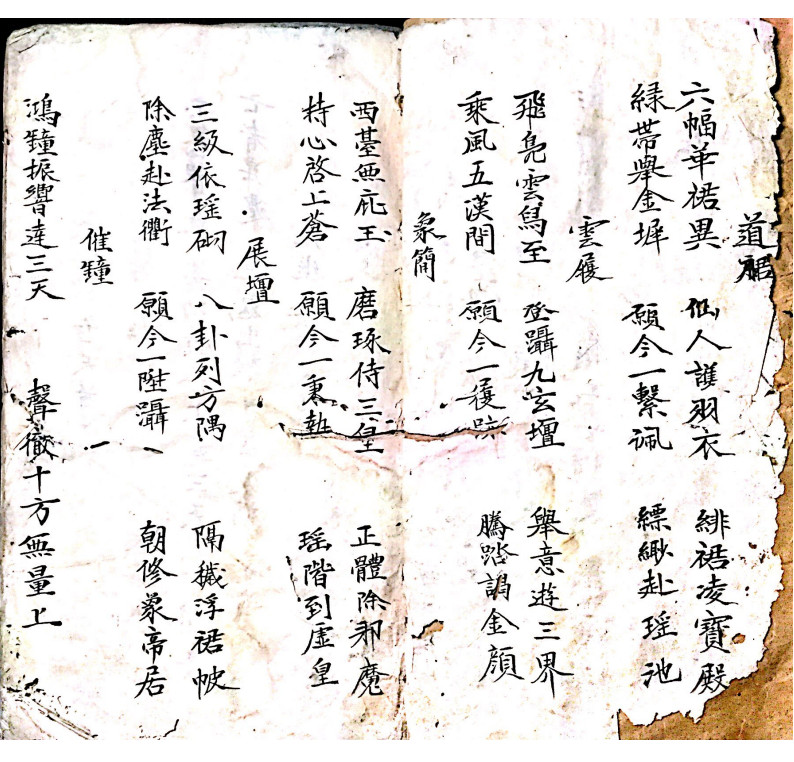 道裙
六幅華裙異 仙人護羽衣 緋裙凌寶殿
緑帶舉金墀 願今一繫諷 縹緲赴瑶池
雲履
飛凫雲舄至 登躡九玄壇 舉意遊三界
乘風五漢間 願今一履跡 騰踏謁金顔
象簡
西臺無疵玉 磨琢侍三皇 正體除邪魔
持心啓上蒼 願今一秉執 瑶階到虚皇
展壇
三級依瑶砌 八卦列方隅 隔穢浮裙帔
除塵赴法衢 願今一陞躡 朝修象帝居
催鐘
鴻鐘振響達三天 聲徹十方無量上